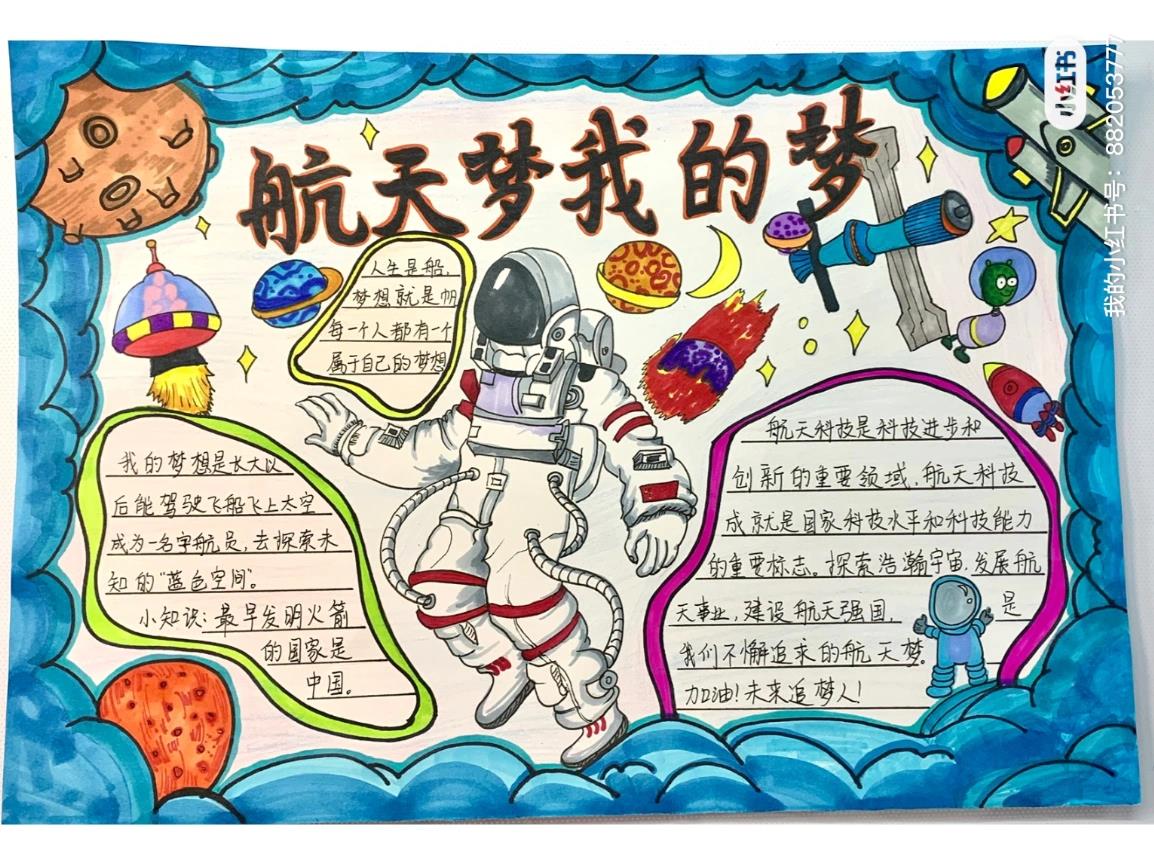 航天梦我的梦
人生是船,
梦想就是帆
每一个人都有一个
属于自己的梦想
我的梦想是长大以
后能驾驶飞船飞上太空
成为一名宇航员,去探索未
知的"蓝色空间"。
小知识:最早发明火箭
的国家是
中国。
航天科技是科技进步和
创新的重要领域,航天科技
成就是国家科技水平和科技能力
的重要标志。探索浩瀚宇宙,发展航
天事业,建设航天强国, 是
我们不懈追求的航天梦。
加油!未来追梦人!
小红书
我的小红书号:882053777